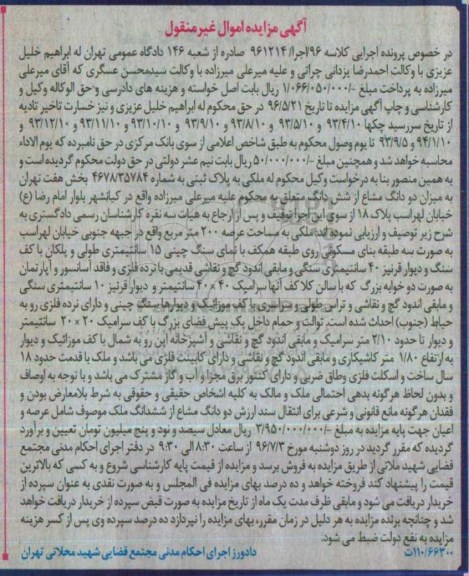 آگهی مزایده اموال غیر منقول
در خصوص پرونده اجرایی کلاسه ۹۶/اجرا/۹۶۱۲۱۴ صادره از شعبه ۱۴۶ دادگاه عمومی تهران له ابراهیم خلیل
عزیزی با وکالت احمدرضا یزدانی چراتی و علیه میرعلی میرزاده با وکالت سیدمحسن عسگری که آقای میرعلی
میرزاده به پرداخت مبلغ -/۱/۰۶۶/۰۵۰/۰۰۰ ریال بابت اصل خواسته و هزینه های دادرسی و حق الوکاله وکیل و
کارشناسی و چاپ آگهی مزایده تا تاریخ ۹۶/۵/۲۱ در حق محکوم له ابراهیم خلیل عزیزی و نیز خسارت تاخیر تادیه
از تاریخ سررسید چکها ۹۳/۴/۱۰ و ۹۳/۵/۱۰ و ۹۳/۸/۱۰ و ۹۳/۹/۱۰ و ۹۳/۱۰/۱۰ و ۹۳/۱۱/۱۰ و ۹۳/۱۲/۱۰ و
۹۴/۱/۱۰ و ۹۳/۹/۵ تا یوم وصول محکوم به طبق شاخص اعلامی از سوی بانک مرکزی در حق نامبرده که یوم الاداء
محاسبه خواهد شد و همچنین مبلغ -/۵۰/۰۰۰/۰۰۰ ریال بابت نیم عشر دولتی در حق دولت محکوم گردیده است و
به همین منصور بنا به درخواست وکیل محکوم له ملکی به پلاک ثبتی به شماره ۴۶۷۸/۳۵۷۸۴ بخش هفت تهران
به میزان دو دانگ مشاع از شش دانگ متعلق به محکوم علیه میرعلی میرزاده واقع در کیانشهر بلوار امام رضا (ع)
خیابان لهراسب پلاک ۱۸ از سوی این اجرا توقیف و پس از ارجاع به هیات سه نفره کارشناسان رسمی دادگستری به
شرح زیر توصیف و ارزیابی نموده اند: ملکی به مساحت عرصه ۲۰۰ متر مربع واقع در جبهه جنوبی خیابان لهراسب
به صورت سه طبقه بنای مسکونی روی طبقه همکف با نمای سنگ چینی ۱۵ سانتیمتری طولی و پلکان با کف
سنگ و دیوار قرنیز ۴۰ سانتیمتری سنگی و مابقی اندود گچ و نقاشی قدیمی با نرده فلزی و فاقد آسانسور و آپارتمان
به صورت دو خوابه بزرگ که با سالن کلا کف آنها سرامیک ۴۰×۴۰ سانتیمتر و دیوار قرنیز ۱۰ سانتیمتری سنگی
و مابقی اندود گچ و نقاشی و تراس طولی و سراسری با کف موزائیک و دیوارها سنگ چینی و دارای نرده فلزی رو به
حیاط (جنوب) احداث شده است. توالت و حمام داخل یک پیش فضای بزرگ با کف سرامیک ۲۰×۲۰ سانتیمتر
و دیوار تا حدود ۲/۱۰ متر سرامیک و مابقی اندود گچ و نقاشی و آشپزخانه اپن رو به شمال با کف موزائیک و دیوار
به ارتفاع ۱/۸۰ متر کاشیکاری و مابقی اندود گچ و نقاشی و دارای کابینت فلزی می باشد و ملک با قدمت حدود ۱۸
سال ساخت و اسکلت فلزی وطاق ضربی و دارای کنتور برق مجزا و آب و گاز مشترک می باشد و با توجه به اوصاف
و بدون لحاظ هرگونه بدهی احتمالی ملک و مالک به کلیه اشخاص حقیقی و حقوقی به شرط بلامعارض بودن و
فقدان هرگونه مانع قانونی و شرعی برای انتقال سند ارزش دو دانگ مشاع از ششدانگ ملک موصوف شامل عرصه و
اعیان جهت پایه مزایده به مبلغ -/۳/۹۵۰/۰۰۰/۰۰۰ ریال معادل سیصد و نود و پنج میلیون تومان تعیین و برآورد
گردیده که مقرر گردید در روز دوشنبه مورخ ۹۶/۷/۳ از ساعت ۸:۳۰ الی ۹:۳۰ در دفتر اجرای احکام مدنی مجتمع
قضایی شهید محلاتی از طریق مزایده به فروش برسد و مزایده از قیمت پایه کارشناسی شروع و به کسی که بالاترین
قیمت را پیشنهاد کند فروخته خواهد و ده درصد بهای مزایده فی المجلس و به صورت نقدی به عنوان سپرده از
خریدار دریافت می شود و مابقی ظرف مدت یک ماه از تاریخ مزایده به صورت قبض سپرده از خریدار دریافت خواهد
شد و چنانچه برنده مزایده به هر دلیل در زمان مقرر، بهای مزایده را نپردازد ده درصد سپرده وی پس از کسر هزینه
مزایده به نفع دولت ضبط می شود.
۱۱۰/۶۶۳۰۰ت دادورز اجرای احکام مدنی مجتمع قضایی شهید محلاتی تهران